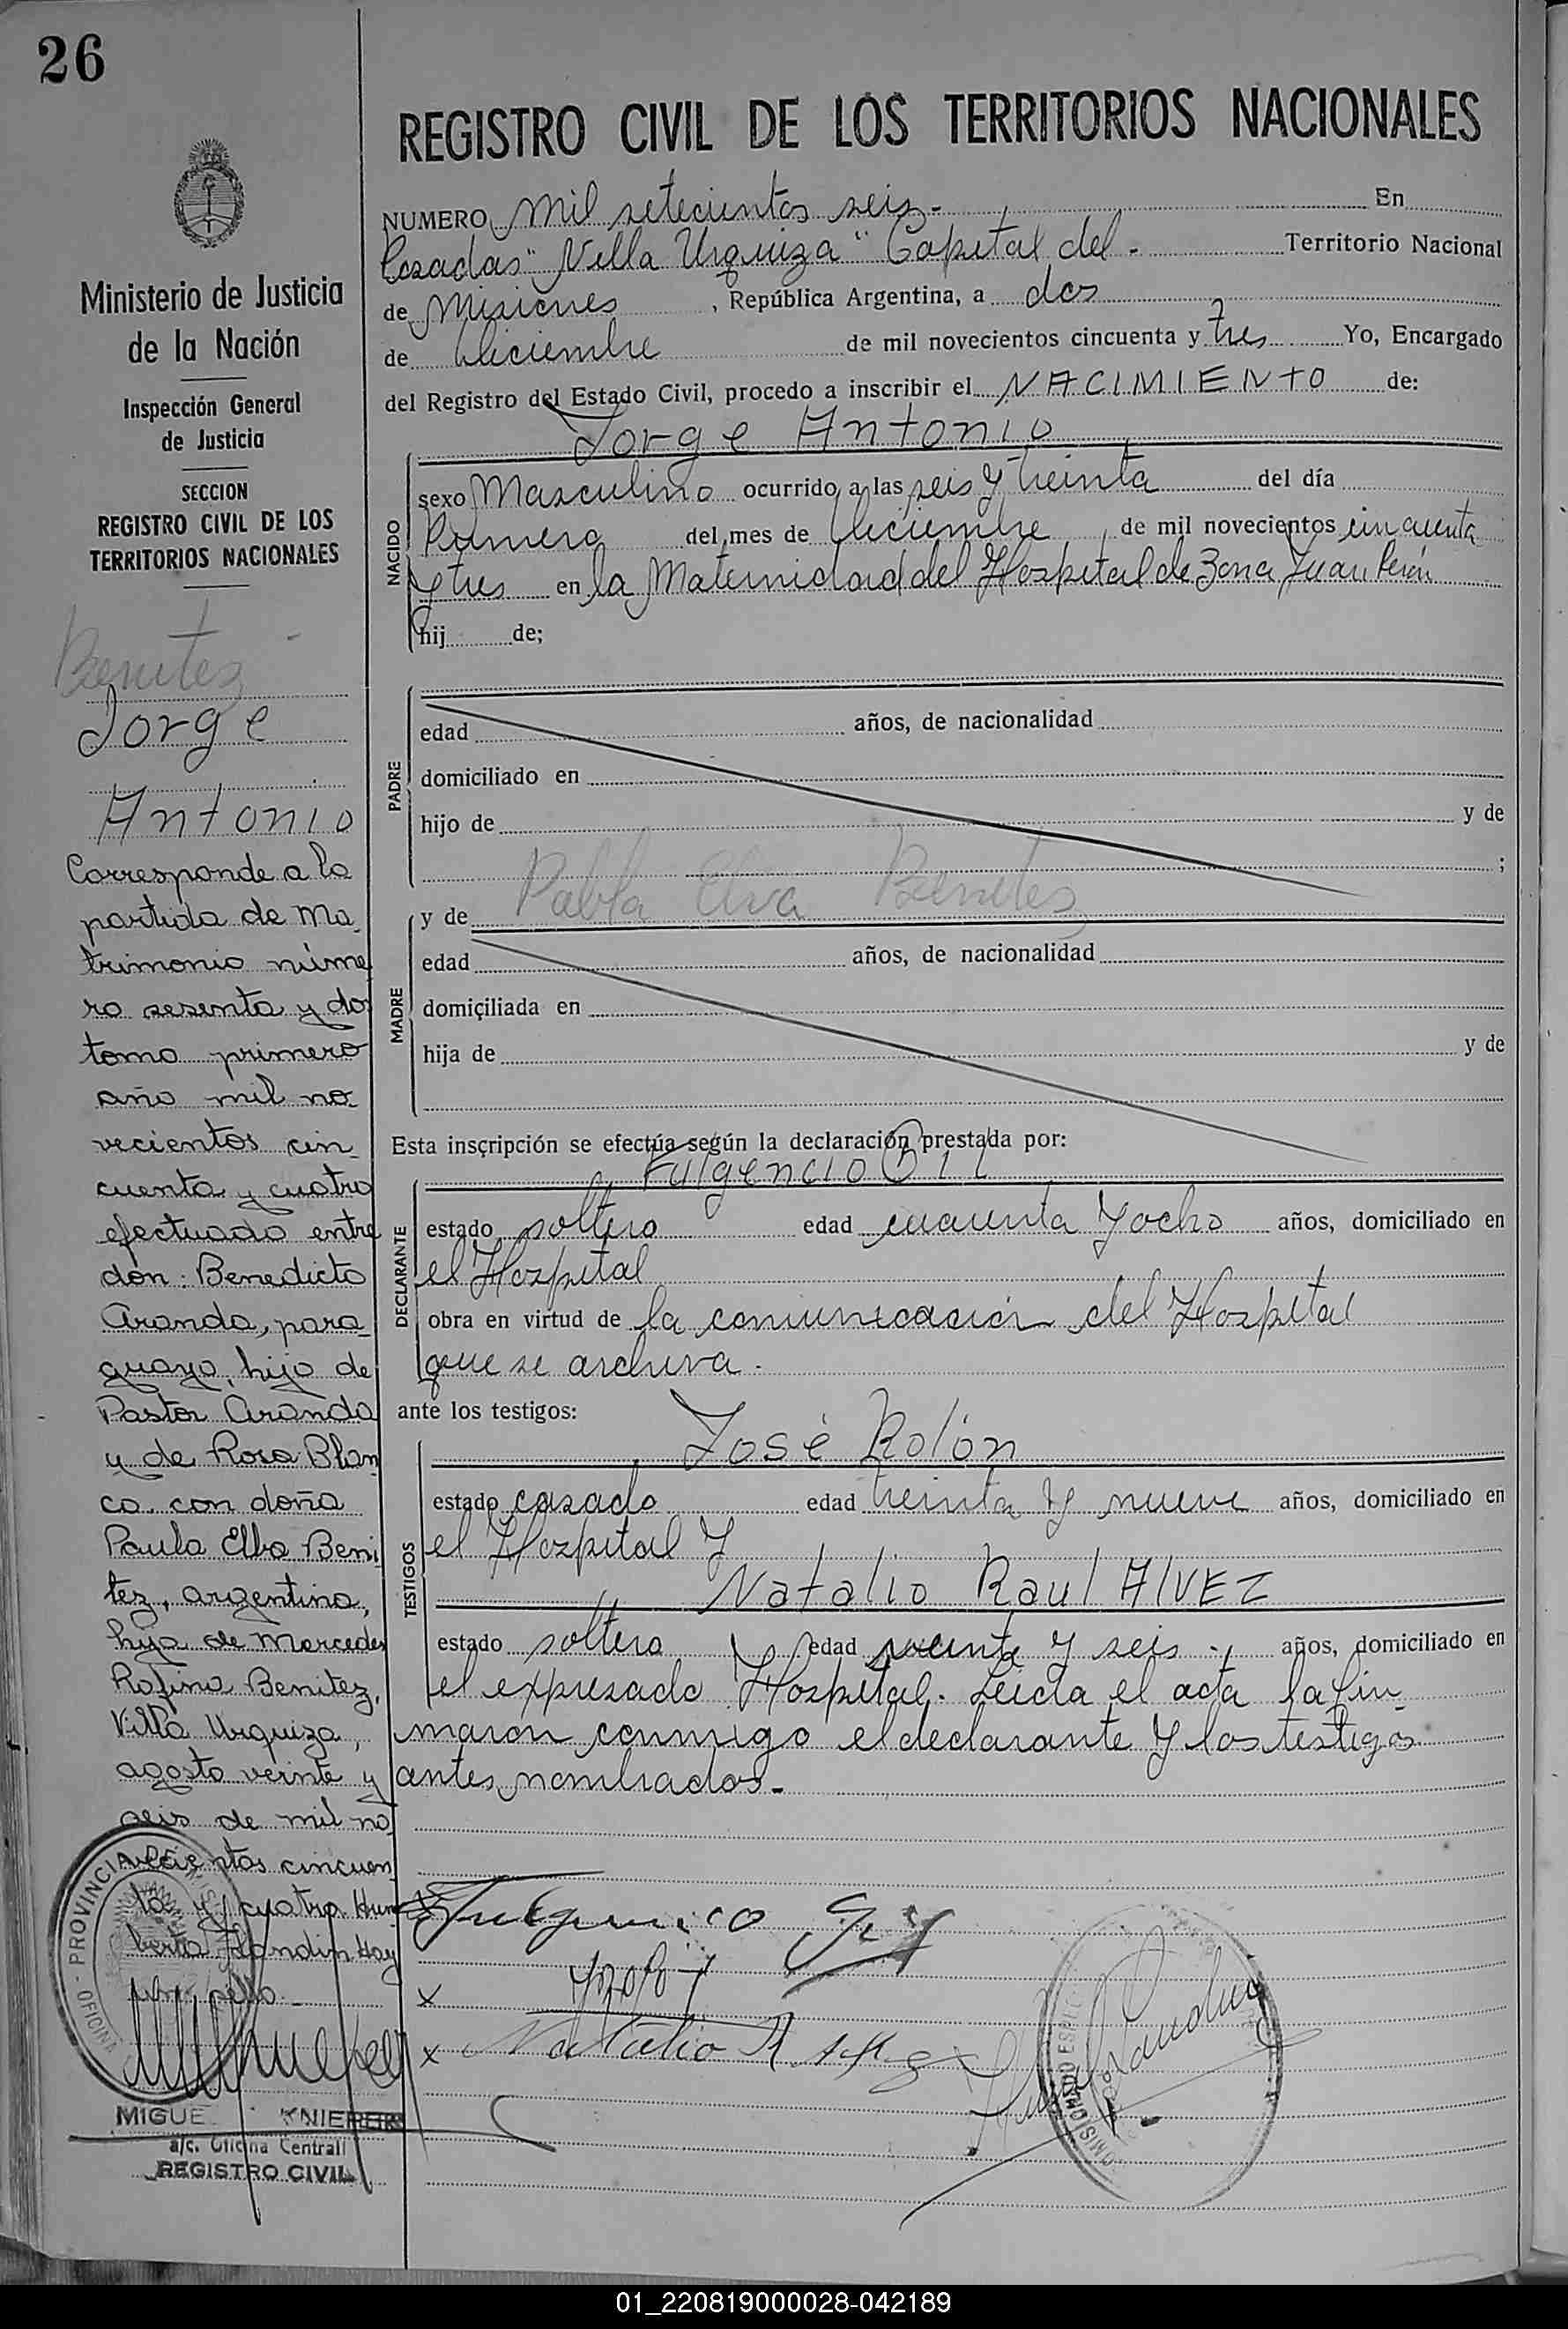 26
REGISTRO CIVIL DE LOS TERRITORIOS NACIONALES
Ministerio de Justicia
de la Nación
Inspección General
de Justicia
SECCION
REGISTRO CIVIL DE LOS
TERRITORIOS NACIONALES
Benitez
Jorge
Antonio
Corresponde a la
partida de Ma
trimonio núme
ro sesenta y dos
tomo primero
año mil no
vecientos cin
cuenta y cuatro
efectuado entre
don: Benedicto
Aranda, para
guayo, hijo de
Pastor Aranda
y de Rosa Blan
co, con doña
Paula Elba Beni
tez, argentina,
hija de Mercedes
Rofina Benitez,
Villa Urquiza,
agosto veinte y
seis de mil no
vecientos cincuen
ta y cuatro Hum
berto Hay
un sello
PROVINCIA
OFICINA
MIGUE KNIERER
a/c. Oficina Central
REGISTRO CIVIL
NUMERO mil setecientos seis.- En
Posadas "Villa Urquiza" Capital del - Territorio Nacional
de Misiones, República Argentina, a dos
de Diciembre de mil novecientos cincuenta y tres Yo, Encargado
del Registro del Estado Civil, procedo a inscribir el NACIMIENTO de:
Jorge Antonio
NACIDO
sexo Masculino ocurrido a las seis y treinta del día
Primero del mes de Diciembre de mil novecientos cincuenta
y tres en la Maternidad del Hospital de Zona Juan Perón
hij de;
PADRE
edad años, de nacionalidad
domiciliado en
hijo de y de
;
y de Pabla Elva Benites
MADRE
edad años, de nacionalidad
domiciliada en
hija de y de
Esta inscripción se efectúa según la declaración prestada por:
Fulgencio Gil
DECLARANTE
estado soltero edad cuarenta y ocho años, domiciliado en
el Hospital
obra en virtud de la comunicación del Hospital
que se archiva.
ante los testigos:
José Rolón
TESTIGOS
estado casado edad treinta y nueve años, domiciliado en
el Hospital y
Natalio Raul AlVEZ
estado soltero edad veinte y seis años, domiciliado en
el expresado Hospital. Leida el acta la fir
maron conmigo el declarante y los testigos
antes nombrados.-
Fulgencio Gil
x
x Natalio R